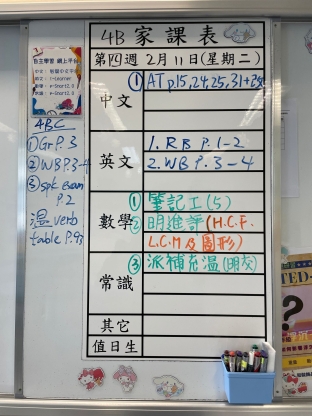 自主學習 網上平台
4BC
①Gr P.3
②WB P.3-4
③spk exam
P.2
溫 verb
table P.93
4B 家課表
第四週 2月11日(星期二)
中文
①AT p.15,24,25,31+改
英文
1. RB P.1-2
2. WB P.3-4
數學
①筆記工(5)
②明進評(H.C.F.
L.C.M及圖形)
常識
③派補充溫(明交)
其它
值日生